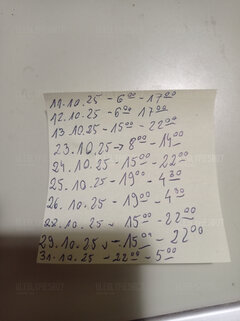 11.10.25 - 6⁰⁰ - 17⁰⁰
12.10.25 - 6⁰⁰ 17⁰⁰
13.10.25 - 15⁰⁰ - 22⁰⁰
23.10.25 → 8⁰⁰ - 14⁰⁰
24.10.25 - 15⁰⁰ - 22⁰⁰
25.10.25 - 19⁰⁰ - 4³⁰
26.10.25 - 19⁰⁰ - 4³⁰
10.25 - 15⁰⁰ - 22⁰⁰
29.10.25 - 15⁰⁰ - 22⁰⁰
31.10.25 - 22⁰⁰ - 5⁰⁰